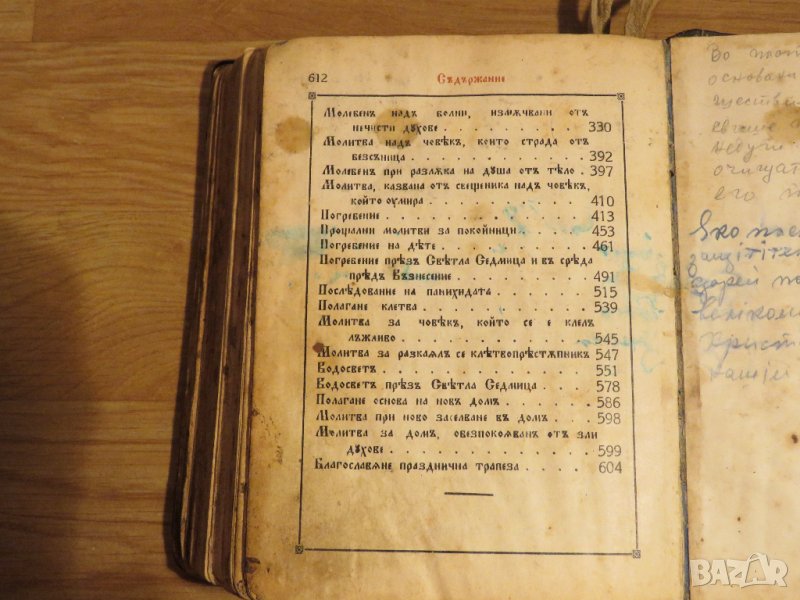 612 Съдържание
Молебенъ надъ болни, измѫчвани отъ
нечисти духове . . . . . . . . . . 330
Молитва надъ човѣкъ, който страда отъ
безсъница . . . . . . . . . . . . 392
Молебенъ при разлѫка на душа отъ тѣло . 397
Молитва, казвана отъ свещеника надъ човѣкъ,
който умира . . . . . . . . . . . 410
Погребение . . . . . . . . . . . . . 413
Прощални молитви за покойници . . . . 453
Погребение на дѣте . . . . . . . . . . 461
Погребение прѣзъ Свѣтла Седмица и въ срѣда
прѣдъ Възнесение . . . . . . . . . 491
Послѣдование на панихидата . . . . . . . 515
Полагане клетва . . . . . . . . . . . . 539
Молитва за човѣкъ, който се е клелъ
лъжливо . . . . . . . . . . . . . 545
Молитва за разкаялъ се клѣтвопрѣстѫпникъ 547
Водосветъ . . . . . . . . . . . . . . 551
Водосветъ прѣзъ Свѣтла Седмица . . . . 578
Полагане основа на новъ домъ . . . . . . 586
Молитва при ново заселване въ домъ . . . 598
Молитва за домъ, обезпокояванъ отъ зли
духове . . . . . . . . . . . . . . 599
Благославяне празднична трапеза . . . . . 604
Во
основани
его
Яко
Христ
BAZAR